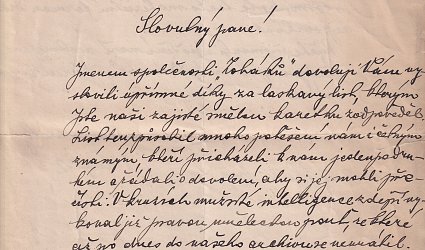 Slovutný pane!
Jmenem společnosti "Toháků" dovoluji Vám vy-
sloviti upřímné díky za laskavý list, kterým
jste naši zajisté mělkou karetku zodpověděl.
List ten způsobil mnoho potěšení nám i četným
známým, kteří přicházeli k nám jeden po dru-
hém a žádali o dovolení, aby si jej mohli pře-
čísti. V kruzích mužské inteligence zdejší vy-
konal již pravou uměleckou pouť, se které
až po dnes do našeho archivu se nevrátil.